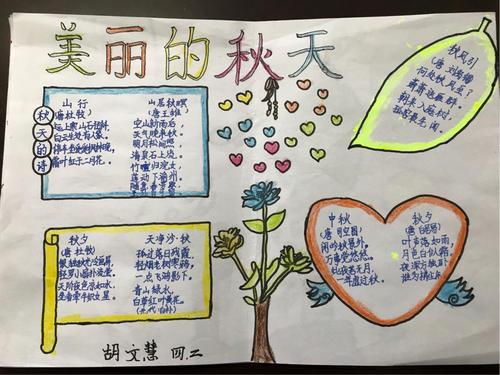 美丽的秋天
秋天的诗
山行
(唐 杜牧)
远上寒山石径斜,
白云生处有人家。
停车坐爱枫林晚,
霜叶红于二月花。
山居秋暝
(唐 王维)
空山新雨后,
天气晚来秋。
明月松间照
清泉石上流。
竹喧归浣女
莲动下渔舟。
秋风引
(唐 刘禹锡)
何处秋风至?
萧萧送雁群。
朝来入庭树,
孤客最先闻。
秋夕
(唐 杜牧)
银烛秋光冷画屏,
轻罗小扇扑流萤。
天阶夜色凉如水,
坐看牵牛织女星。
天净沙·秋
孤村落日残霞,
轻烟老树寒鸦,
一点飞鸿影下。
青山绿水,
白草红叶黄花。
(元代 白朴)
中秋
(唐 司空图)
闲吟秋景外,
万事觉悠悠。
此夜若无月,
一年虚过秋。
秋夕
(唐 白居易)
叶声落如雨,
月色白似霜。
夜深方独卧
谁为拂尘床
胡文慧 四.二